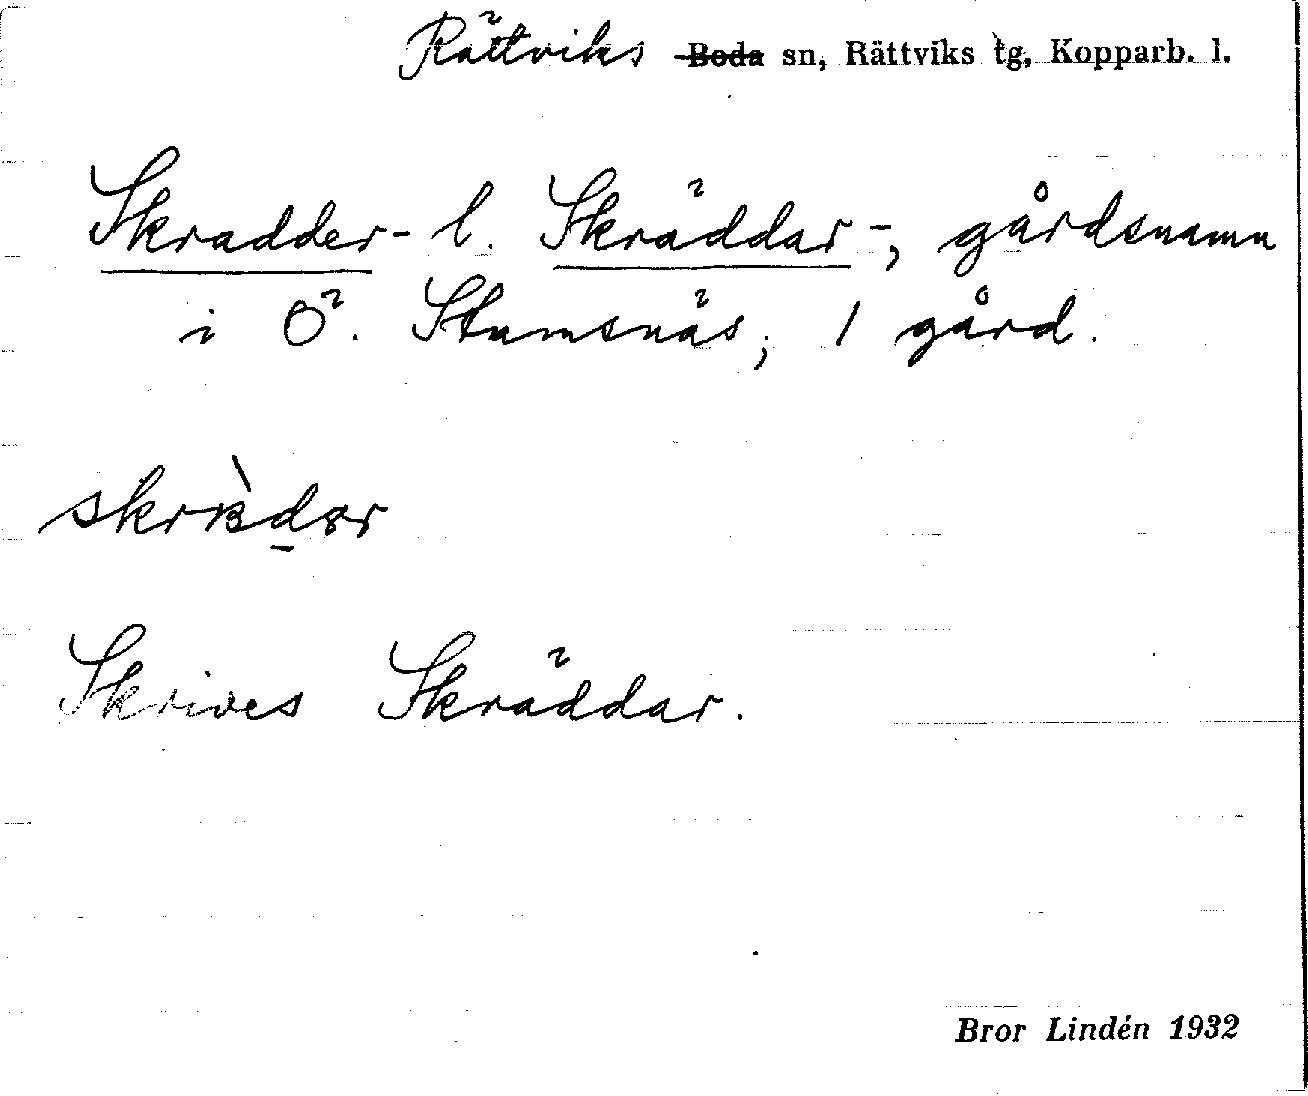 Rättviks Boda sn, Rättviks tg, Kopparb. l.
Skradder- l. Skräddar-, gårdsnamn
i Ö. Stumsnäs, 1 gård.
Skrives Skräddar.
Bror Lindén 1932